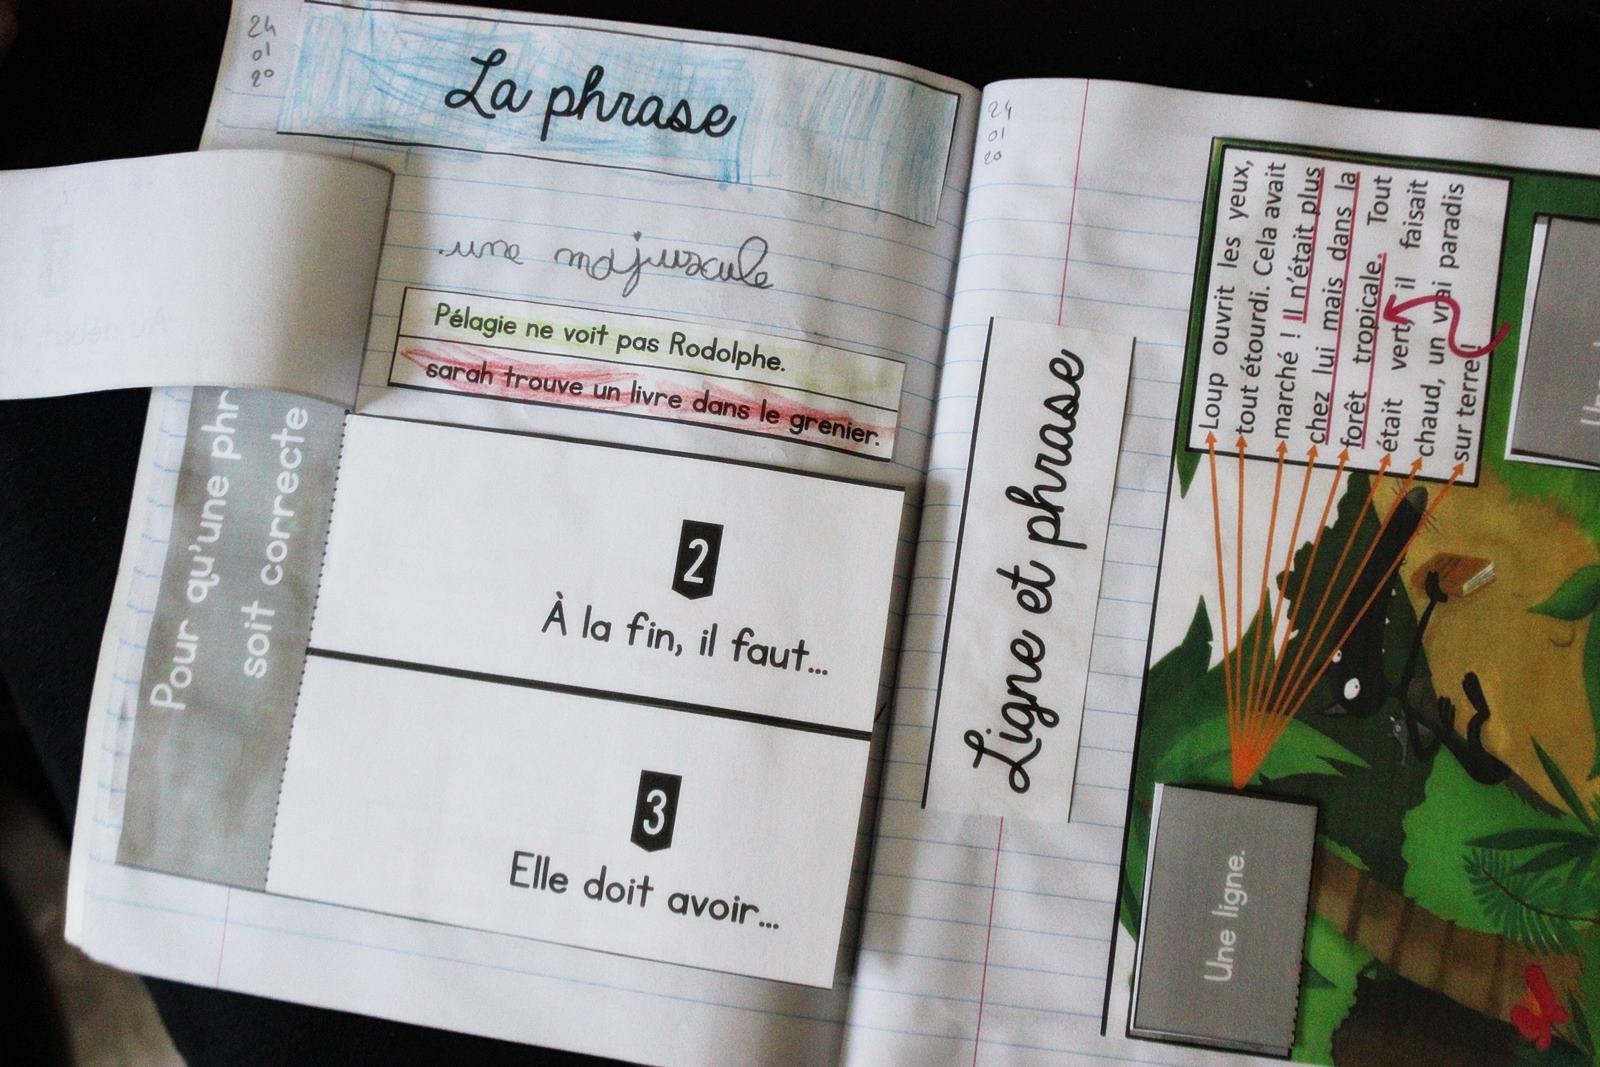 24
01
20
La phrase
une majuscule
Pélagie ne voit pas Rodolphe.
sarah trouve un livre dans le grenier.
Pour qu'une phr
soit correcte
2
À la fin, il faut...
3
Elle doit avoir...
24
01
20
Ligne et phrase
Loup ouvrit les yeux,
tout étourdi. Cela avait
marché ! Il n'était plus
chez lui mais dans la
forêt tropicale. Tout
était vert, il faisait
chaud, un vrai paradis
sur terre !
Une ligne.